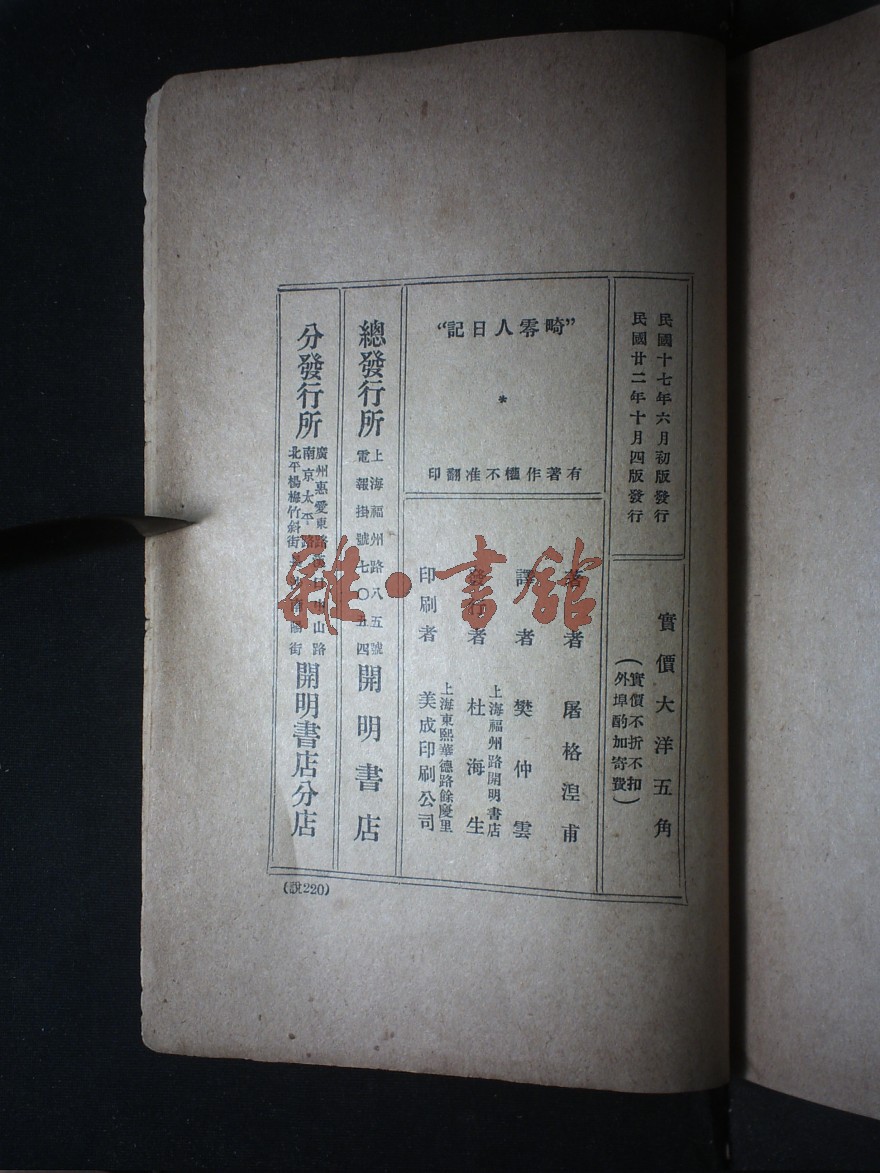 民國十七年六月初版發行
民國廿二年十月四版發行
實價大洋五角
（實價不折不扣
外埠酌加寄費）
“畸零人日記”
*
有著作權不准翻印
著者 屠格涅甫
譯者 樊仲雲
發行者 杜海生
上海福州路開明書店
印刷者 美成印刷公司
上海東熙華德路餘慶里
總發行所 上海福州路八五號 電報掛號七〇五四 開明書店
分發行所 廣州惠愛東路 南京太平路 北平楊梅竹斜街 開明書店分店
(說220)
雜·書館